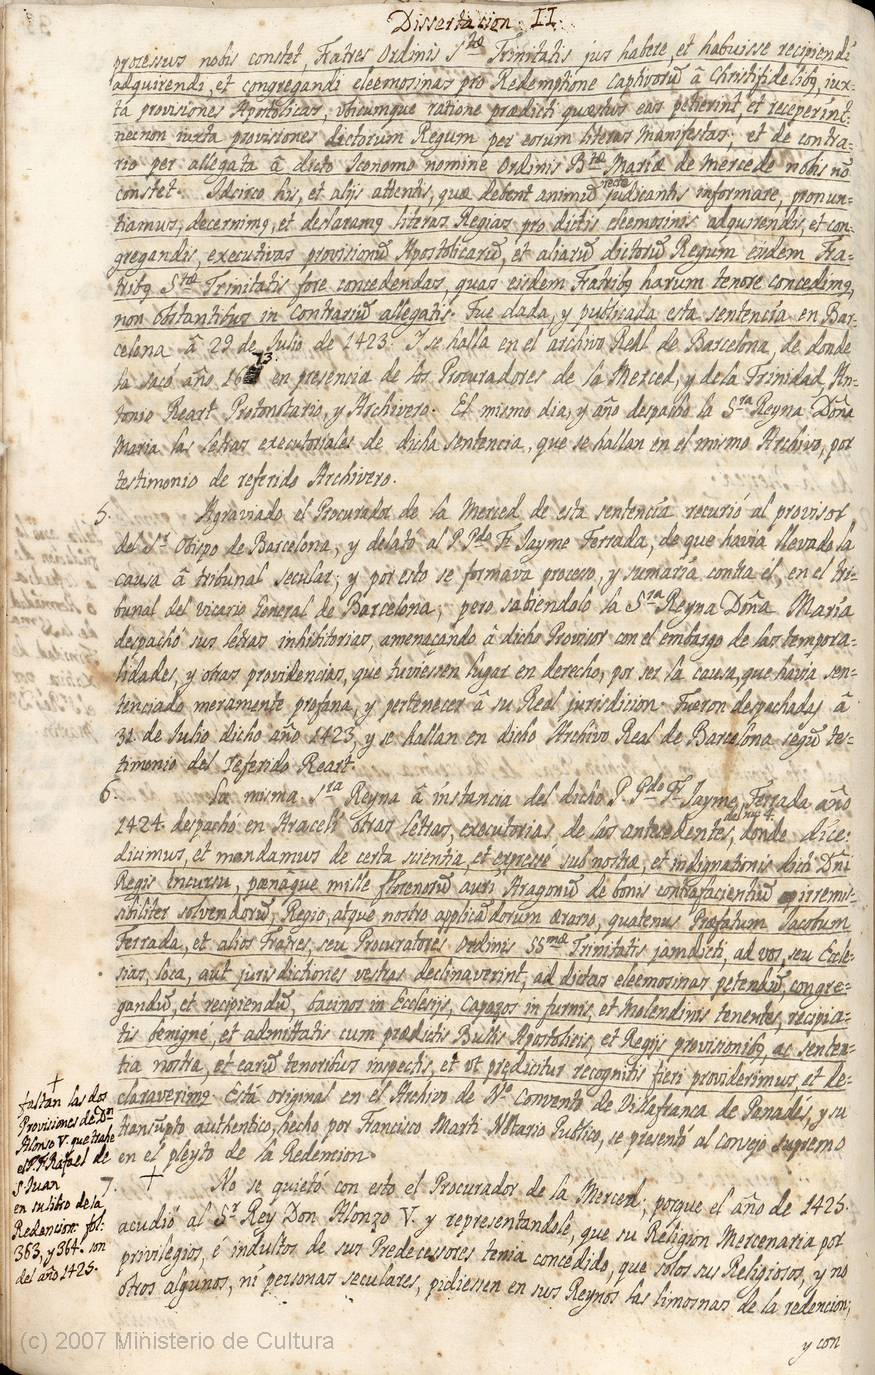 Dissertacion II.
processus nobis constet, Fratres Ordinis Stæ Trinitatis jus habere, et habuisse recipiendi
adquirendi, et congregandi eleemosinas pro Redemptione captivorũ â Christifidelibq, iux-
ta provisiones Apostolicas, vbicumque ratione prædicti quæstus eas petierint, et receperint:
necnon iuxta provisiones dictorum Regum per eorum literas manifestas; et de contra=
rio per allegata â dicto Iconomo nomine Ordinis Btæ Mariæ de Mercede nobis nõ
constet. Idcirco his, et alijs attentis, quæ debent animũ recte judicantis informare, pronun-
tiamus, decernimq, et declaramq literas Regias pro dictis eleemosinis adquirendis, et con-
gregandis, executivas provisionũ Apostolicarũ, et aliarũ dictorũ Regum eisdem Fra-
tribq Stæ Trinitatis fore concedendas, quas eisdem Fratribq harum tenore concedimq,
non obstantibus in contrariũ allegatis. Fue dada, y publicada esta sentencia en Bar-
celona â 29 de Julio de 1423. Y se halla en el archivo Real de Barcelona, de donde
la sacó año 16 73. en presencia de los Procuradores de la Merced, y de la Trinidad, An-
tonio Reart Protonotario, y Archivero. El mismo dia, y año despacho la Sra Reyna Doña
Maria las letras executoriales de dicha sentencia, que se hallan en el mismo Archivo, por
testimonio de referido Archivero.
5. Agraviado el Procurador de la Merced de esta sentencia recurió al provisor
del Sr Obispo de Barcelona, y delató al P. Pdo Fr Jayme Ferrada, de que havia llevado la
causa â tribunal secular; y por esto se formava proceso, y sumaría contra él, en el tri-
bunal del vicario General de Barcelona; pero sabiendolo la Sra Reyna Dña Maria
despachó sus letras inhibitorias, amenaçando â dicho Provisor con el embargo de las tempora-
lidades, y otras providencias, que tuviessen lugar en derecho, por ser la causa, que havia sen-
tenciado meramente profana, y pertenecer â su Real jurisdicion. Fueron despachadas â
31 de Julio dicho año 1423, y se hallan en dicho Archivo Real de Barcelona segũ tes-
timonio del referido Reart.
6. La misma Sra Reyna â instancia del dicho P. Pdo Fr Jayme Ferrada año
1424. despachó en Aracelí otras letras, executorias de las antecedentes, del nu. 4. donde dice:
dicimus, et mandamus de certa scientia, et expressé sub nostræ, et indignationis dicti Dñi
Regis incursu, pænaque mille florenorũ auri Aragonũ de bonis contrafacientiũ irremis-
sibiliter solvendorũ, Regio, atque nostro applicãdorum ærario, quatenus Præfatum Jacobum
Ferrada, et alios Fratres, seu Procuratores Ordinis SSmæ Trinitatis jamdicti, ad vos, seu Eccle-
sias, loca, aut jurisdictiones vestras declinaverint, ad dictas eleemosinas petendũ, congre-
gandũ, et recipiendũ, bacinos in Ecclesijs, capazos in furnis, et Molendinis tenentes, recipia-
tis benigné, et admittatis cum prædictis Bullis Apostolicis, et Regijs provisionibq, ac senten-
tia nostra, et earũ tenoribus inspectis, et vt predicitur recognitis fieri providerimus, et de-
claraverimq. Está original en el Archivo de Nro Convento de Villafranca de Panadés, y su
transupto authentico, hecho por Francisco Marti Notario Publico, se presentó al consejo supremo
en el pleyto de la Redencion.
7. + No se quietó con esto el Procurador de la Merced, porque el año de 1425.
acudió al Sr Rey Don Alonzo V. y representandole, que su Religion Mercenaria por
privilegios, é indultos de sus Predecessores tenia concedido, que solos sus Religiosos, y no
otros algunos, ni personas seculares, pidiessen en sus Reynos las limosnas de la redencion;
y con
+
faltan las dos
Provisiones de Dn
Alonso V. que trahe
el P. Fr Rafael de
S. Juan
en su libro de la
Redencion fol:
363, y 364. son
del año 1425.
(c) 2007 Ministerio de Cultura